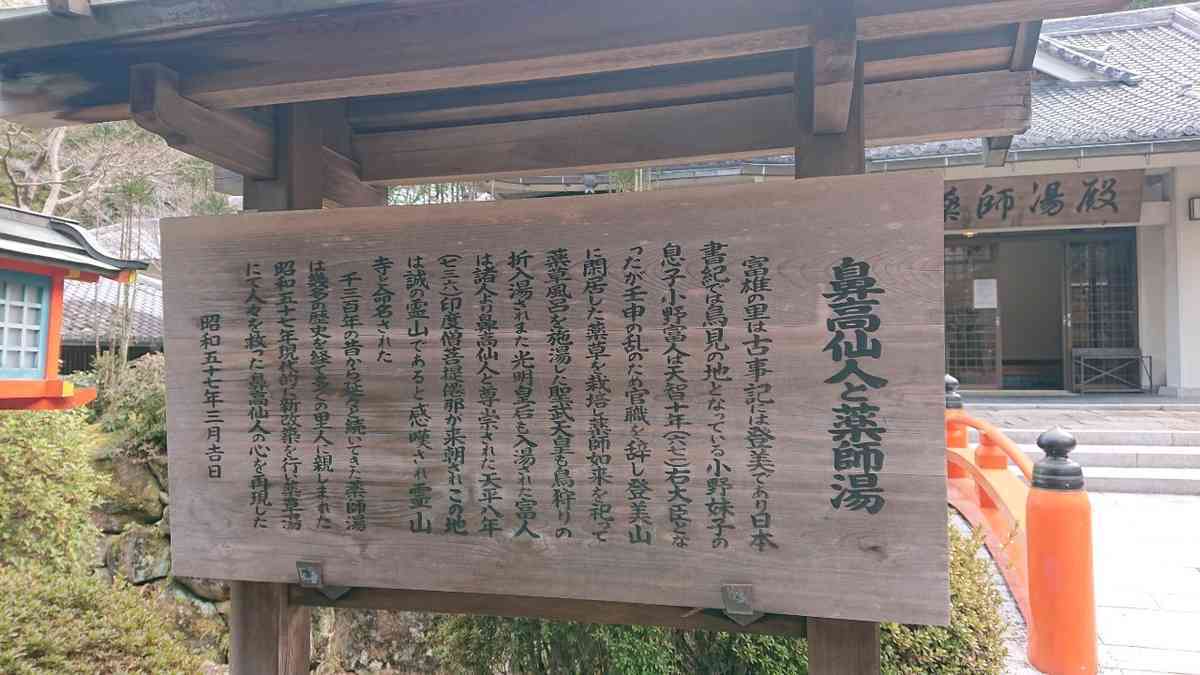 鼻高仙人と薬師湯
富雄の里は古事記には登美であり日本
書紀では鳥見の地となっている小野妹子の
息子小野富人は天智十年(六七一)右大臣とな
ったが壬申の乱のため官職を辞し登美山
に閑居した薬草を栽培し薬師如来を祀って
薬草風呂を施湯した聖武天皇も鳥狩りの
折入湯されまた光明皇后も入湯された富人
は諸人より鼻高仙人と尊崇された天平八年
(七三六)印度僧菩提僊那が来朝されこの地
は誠の霊山であると感嘆され霊山
寺と命名された
千三百年の昔から延々続いてきた薬師湯
は幾多の歴史を経て多くの里人に親しまれた
昭和五十七年現代的に新改築を行い薬草湯
にて人々を救った鼻高仙人の心を再現した
昭和五十七年三月吉日
薬師湯殿